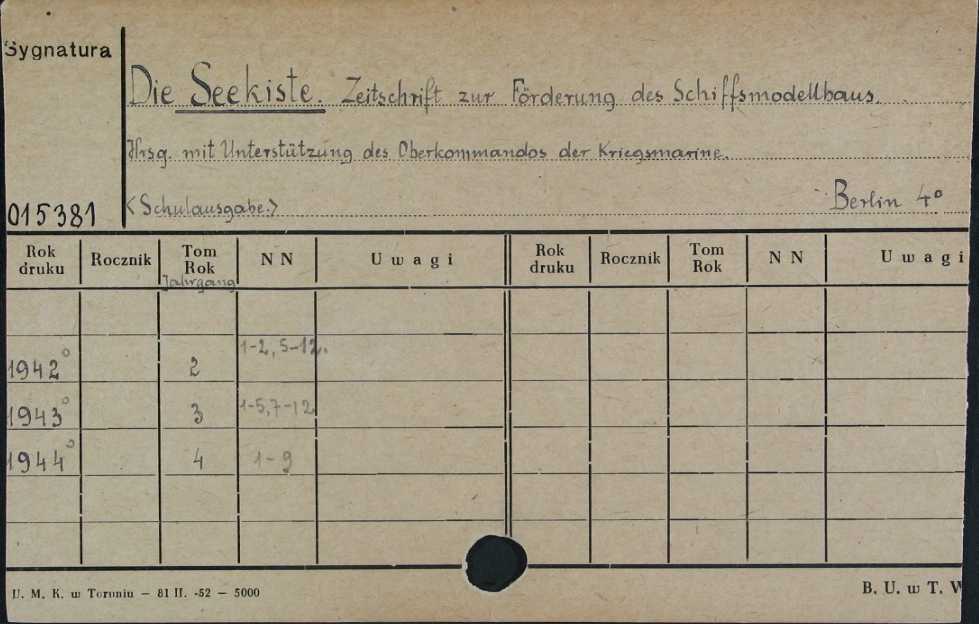 Sygnatura
Die Seekiste. Zeitschrift zur Förderung des Schiffsmodellbaus.
Hrsg. mit Unterstützung des Oberkommandos der Kriegsmarine.
015381 <Schulausgabe.> Berlin 4°
Rok druku Rocznik Tom Rok Jahrgang NN Uwagi Rok druku Rocznik Tom Rok NN Uwagi
1942° 2 1-2, 5-12.
1943° 3 1-5, 7-12
1944° 4 1-9
U. M. K. w Toruniu — 81 II. -52 — 5000 B. U. w T. W